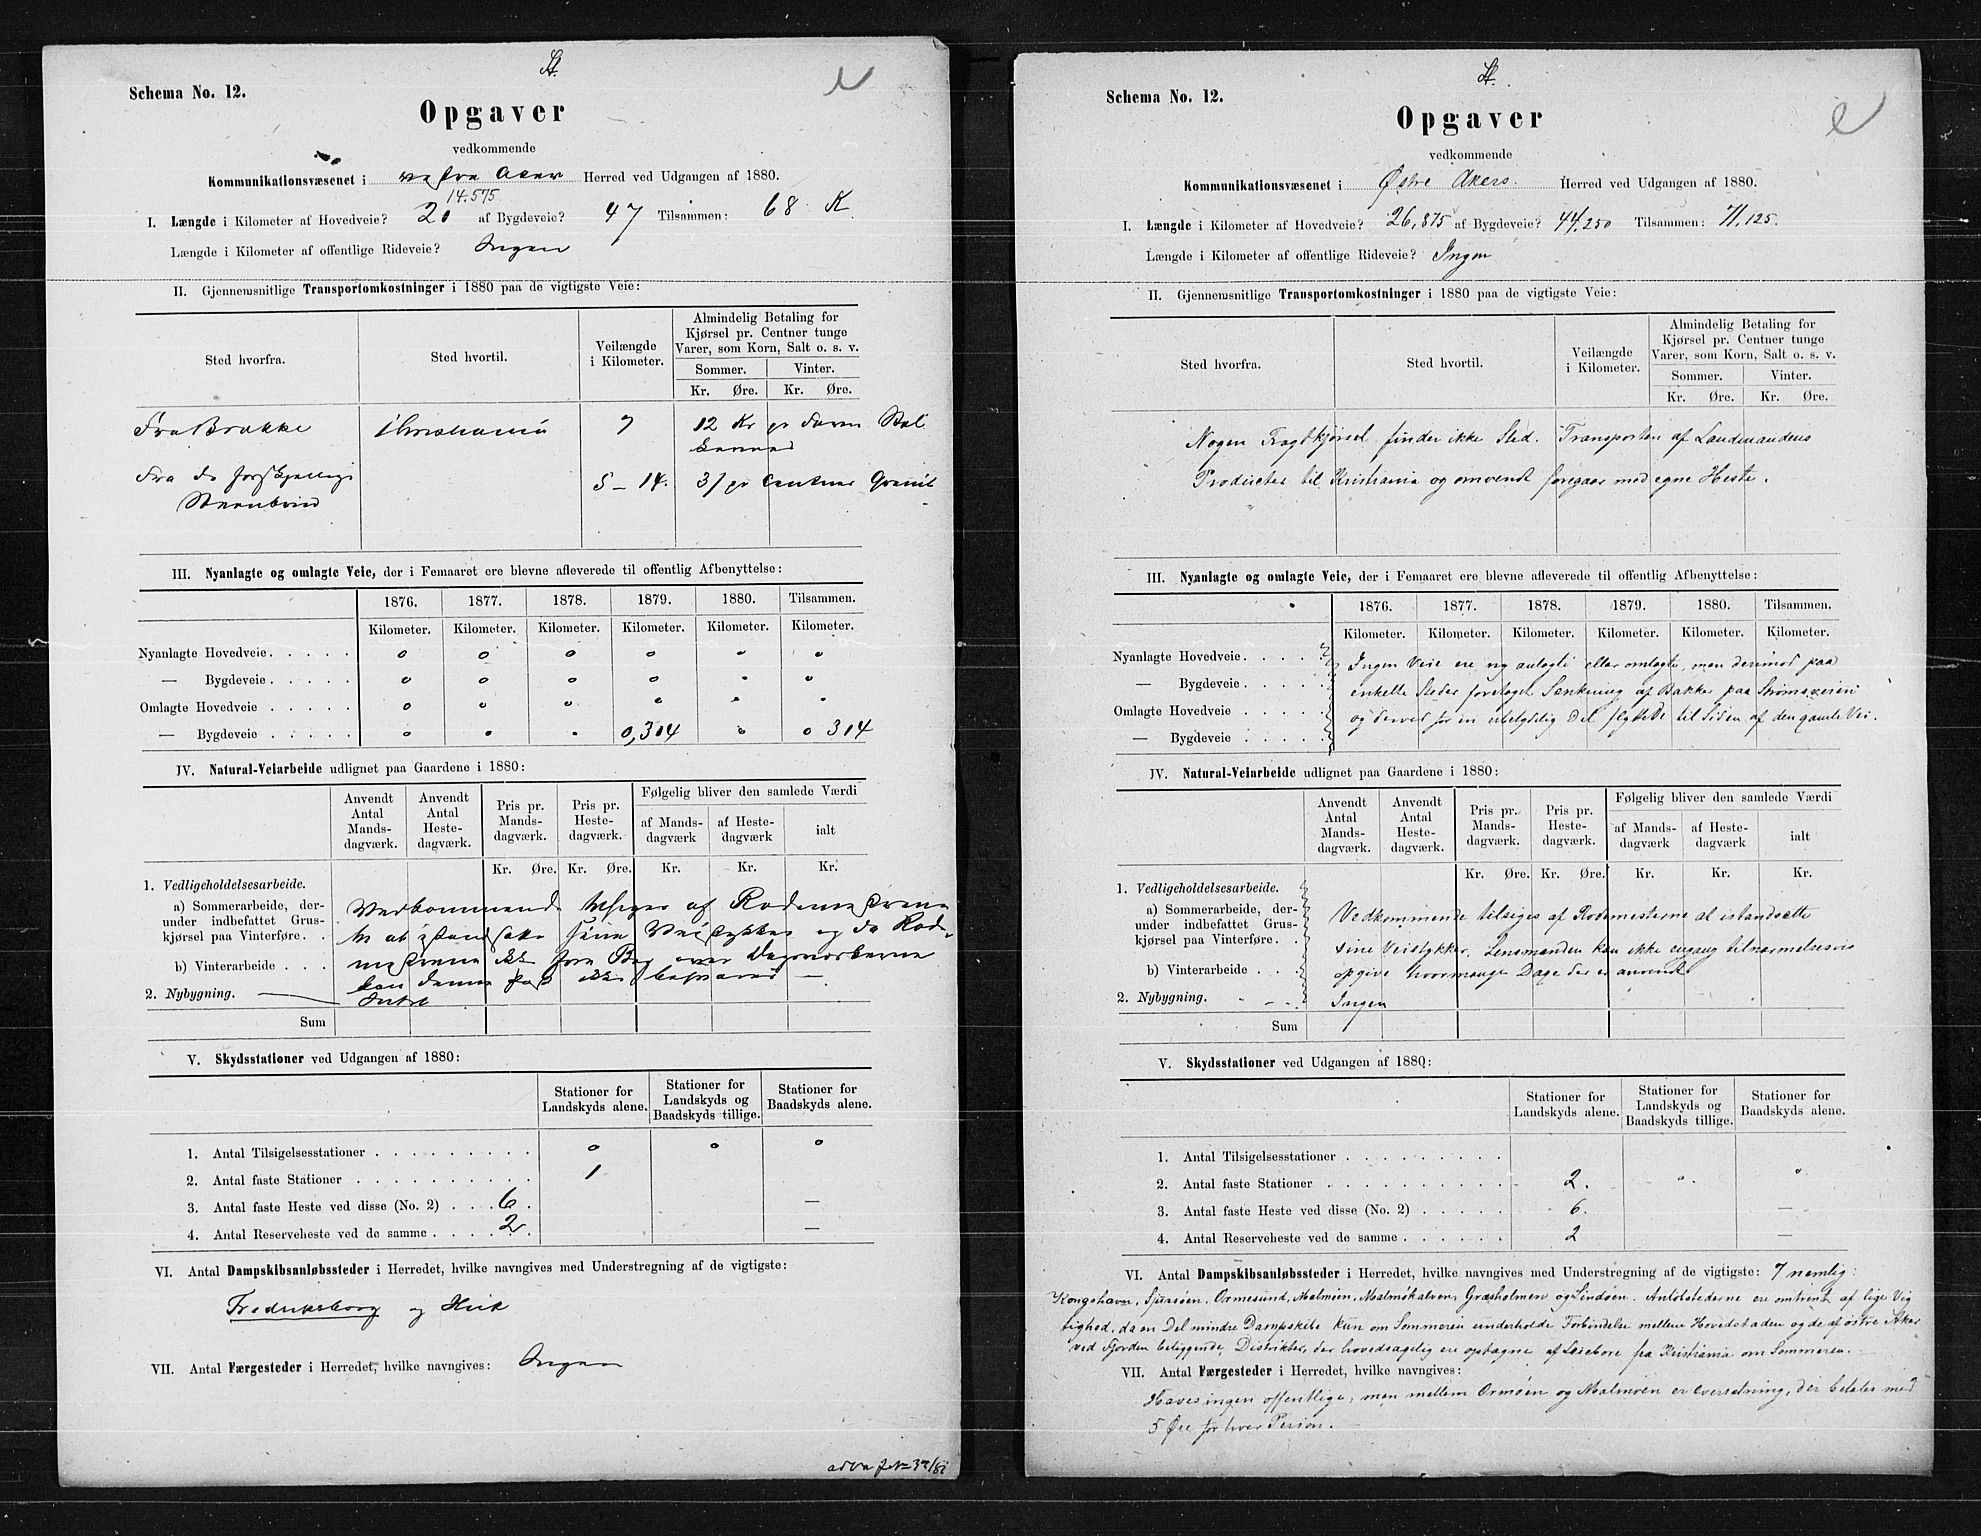 St.
Schema No. 12.
Opgaver
vedkommende
Kommunikationsvæsenet i vestre Aker Herred ved Udgangen af 1880.
14.575
I. Længde i Kilometer af Hovedveie? af Bygdeveie? 47 Tilsammen: 68 K.
Længde i Kilometer af offentlige Rideveie? Ingen
II. Gjennemsnitlige Transportomkostninger i 1880 paa de vigtigste Veie:
Sted hvorfra. Sted hvortil. Veilængde i Kilometer. Almindelig Betaling for Kjørsel pr. Centner tunge Varer, som Korn, Salt o. s. v.
Sommer. Vinter.
Kr. Øre. Kr. Øre.
Fra Brække Christiania 7 12 Kr pr Favn
Fra de forskjellige 5 - 14. pr Centner Granit
Steenbrud
III. Nyanlagte og omlagte Veie, der i Femaaret ere blevne afleverede til offentlig Afbenyttelse:
1876. 1877. 1878. 1879. 1880. Tilsammen.
Kilometer. Kilometer. Kilometer. Kilometer. Kilometer. Kilometer.
Nyanlagte Hovedveie. 0 0 0 0 0 0
— Bygdeveie. 0 0 0 0 0 0
Omlagte Hovedveie 0 0 0 0 0 0
— Bygdeveie 0 0 0 0,314 0 0 314
IV. Natural-Veiarbeide udlignet paa Gaardene i 1880:
Anvendt Antal Mandsdagværk. Anvendt Antal Hestedagværk. Pris pr. Mandsdagværk. Pris pr. Hestedagværk. Følgelig bliver den samlede Værdi
af Mandsdagværk af Hestedagværk ialt
Kr. Øre. Kr. Øre. Kr. Kr. Kr.
1. Vedligeholdelsesarbeide.
a) Sommerarbeide, der- Vedkommende tilsiges af Rodemestrene
under indbefattet Grus- at istandsætte sine Veistykker og da Rode-
kjørsel paa Vinterføre.
b) Vinterarbeide mestrene ikke fører Bog over Dagværkerne
kan denne Post ikke besvares —
2. Nybygning. Intet
Sum
V. Skydsstationer ved Udgangen af 1880:
Stationer for Landskyds alene. Stationer for Landskyds og Baadskyds tillige. Stationer for Baadskyds alene.
1. Antal Tilsigelsesstationer 0 0 0
2. Antal faste Stationer 1
3. Antal faste Heste ved disse (No. 2) 6. —
4. Antal Reserveheste ved de samme 2 —
VI. Antal Dampskibsanløbssteder i Herredet, hvilke navngives med Understregning af de vigtigste:
Frederiksborg og
VII. Antal Færgesteder i Herredet, hvilke navngives: Ingen
St.
Schema No. 12.
Opgaver
vedkommende
Kommunikationsvæsenet i Østre Akers. Herred ved Udgangen af 1880.
I. Længde i Kilometer af Hovedveie? 26,875 af Bygdeveie? 44.250 Tilsammen: 71,125.
Længde i Kilometer af offentlige Rideveie? Ingen
II. Gjennemsnitlige Transportomkostninger i 1880 paa de vigtigste Veie:
Sted hvorfra. Sted hvortil. Veilængde i Kilometer. Almindelig Betaling for Kjørsel pr. Centner tunge Varer, som Korn, Salt o. s. v.
Sommer. Vinter.
Kr. Øre. Kr. Øre.
Nogen Fragtkjørsel finder ikke Sted. Transporten af Landmandens
Producter til Kristiania og omvendt foregaar med egne Heste.
III. Nyanlagte og omlagte Veie, der i Femaaret ere blevne afleverede til offentlig Afbenyttelse:
1876. 1877. 1878. 1879. 1880. Tilsammen.
Kilometer. Kilometer. Kilometer. Kilometer. Kilometer. Kilometer.
Nyanlagte Hovedveie. Ingen Veie ere ny anlagte eller omlagte, men derimod paa
— Bygdeveie enkelte Steder foretaget Sænkning af Bakker paa Strømsveien
Omlagte Hovedveie og derved for en ubetydelig Del flyttede til Siden af den gamle Vei.
— Bygdeveie
IV. Natural-Veiarbeide udlignet paa Gaardene i 1880:
Anvendt Antal Mandsdagværk. Anvendt Antal Hestedagværk. Pris pr. Mandsdagværk. Pris pr. Hestedagværk. Følgelig bliver den samlede Værdi
af Mandsdagværk af Hestedagværk ialt
Kr. Øre. Kr. Øre. Kr. Kr. Kr.
1. Vedligeholdelsesarbeide.
a) Sommerarbeide, der- Vedkommende tilsiges af Rodemesterne at istandsætte
under indbefattet Grus-
kjørsel paa Vinterføre. sine Veistykker. Lensmanden kan ikke engang tilnærmelsesvis
b) Vinterarbeide opgive hvormange Dage der er anvendt
2. Nybygning. Ingen
Sum
V. Skydsstationer ved Udgangen af 1880:
Stationer for Landskyds alene. Stationer for Landskyds og Baadskyds tillige. Stationer for Baadskyds alene.
1. Antal Tilsigelsesstationer
2. Antal faste Stationer 2. " "
3. Antal faste Heste ved disse (No. 2) 6. —
4. Antal Reserveheste ved de samme 2 —
VI. Antal Dampskibsanløbssteder i Herredet, hvilke navngives med Understregning af de vigtigste: 7 nemlig:
Kongshavn, Sjursøen, Ormesund, Malmøen, Malmøkalven, Græsholmen og Lindøen. Anløbstederne ere omtrent af lige Vig
tighed, da en Del mindre Dampskibe kun om Sommeren underholde Forbindelse mellem Hovedstaden og de af østre Aker
ved Fjorden beliggende Distrikter, der hovedsagelig ere optagne af Leieboere fra Kristiania om Sommeren.
VII. Antal Færgesteder i Herredet, hvilke navngives:
Haves ingen offentlige, men mellem Ormøen og Malmøen er Oversætning, der betales med
5 Øre for hver Person.